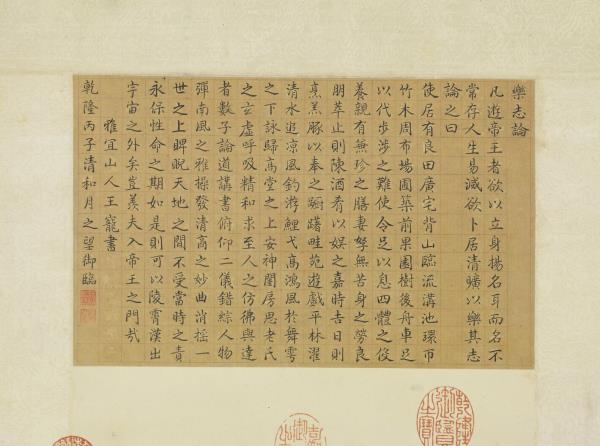 樂志論
凡遊帝王者欲以立身揚名耳而名不
常存人生易滅欲卜居清曠以樂其志
論之曰
使居有良田廣宅背山臨流溝池環帀
竹木周布場圃築前果園樹後舟車足
以代步涉之難使令足以息四體之役
養親有兼珍之膳妻孥無苦身之勞良
朋萃止則陳酒肴以娛之嘉時吉日則
烹羔豚以奉之躕躇畦苑遊戲平林濯
清水追凉風釣游鯉弋高鴻風於舞雩
之下詠歸高堂之上安神閨房思老氏
之玄虛呼吸精和求至人之仿彿與達
者數子論道講書俯仰二儀錯綜人物
彈南風之雅操發清商之妙曲逍搖一
世之上睥睨天地之間不受當時之責
永保性命之期如是則可以陵霄漢出
宇宙之外矣豈羨夫入帝王之門哉
雅宜山人王寵書
乾隆丙子清和月之望御臨
乾隆御覽之寶